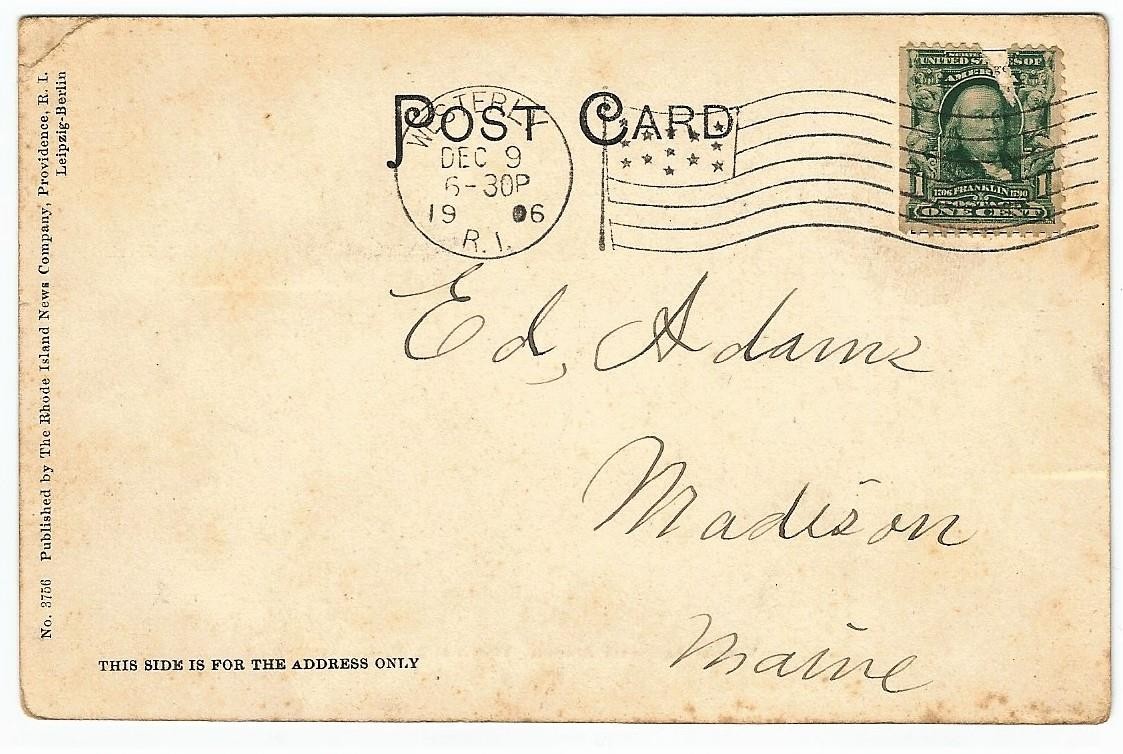 No. 3756 Published by The Rhode Island News Company, Providence, R. I.
Leipzig-Berlin
POST CARD
WESTERLY
DEC 9
6-30P
19 06
R.I.
UNITED STATES OF
AMERICA
1 1706 FRANKLIN 1790 1
POSTAGE
ONE CENT
Ed, Adams
Madison
Maine
THIS SIDE IS FOR THE ADDRESS ONLY